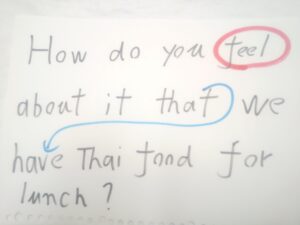 How do you feel
about it that we
have Thai food for
lunch?